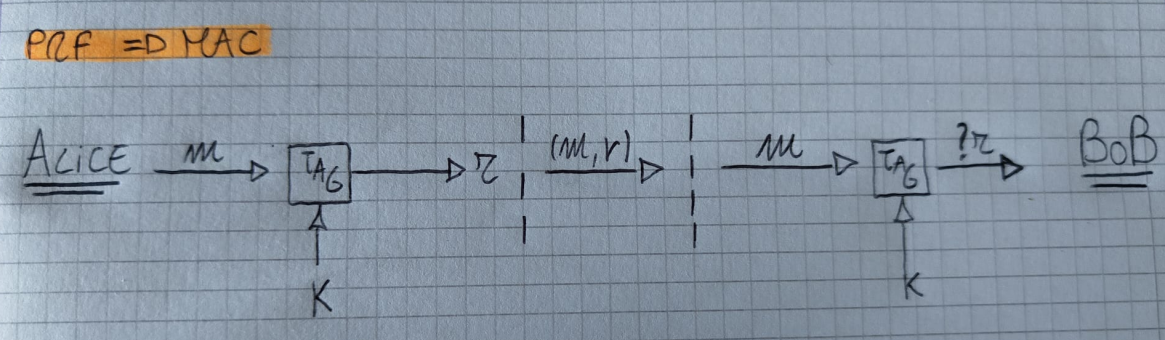 PRF => MAC
ALICE m TAG τ (m,τ) m TAG ?τ BOB
K K